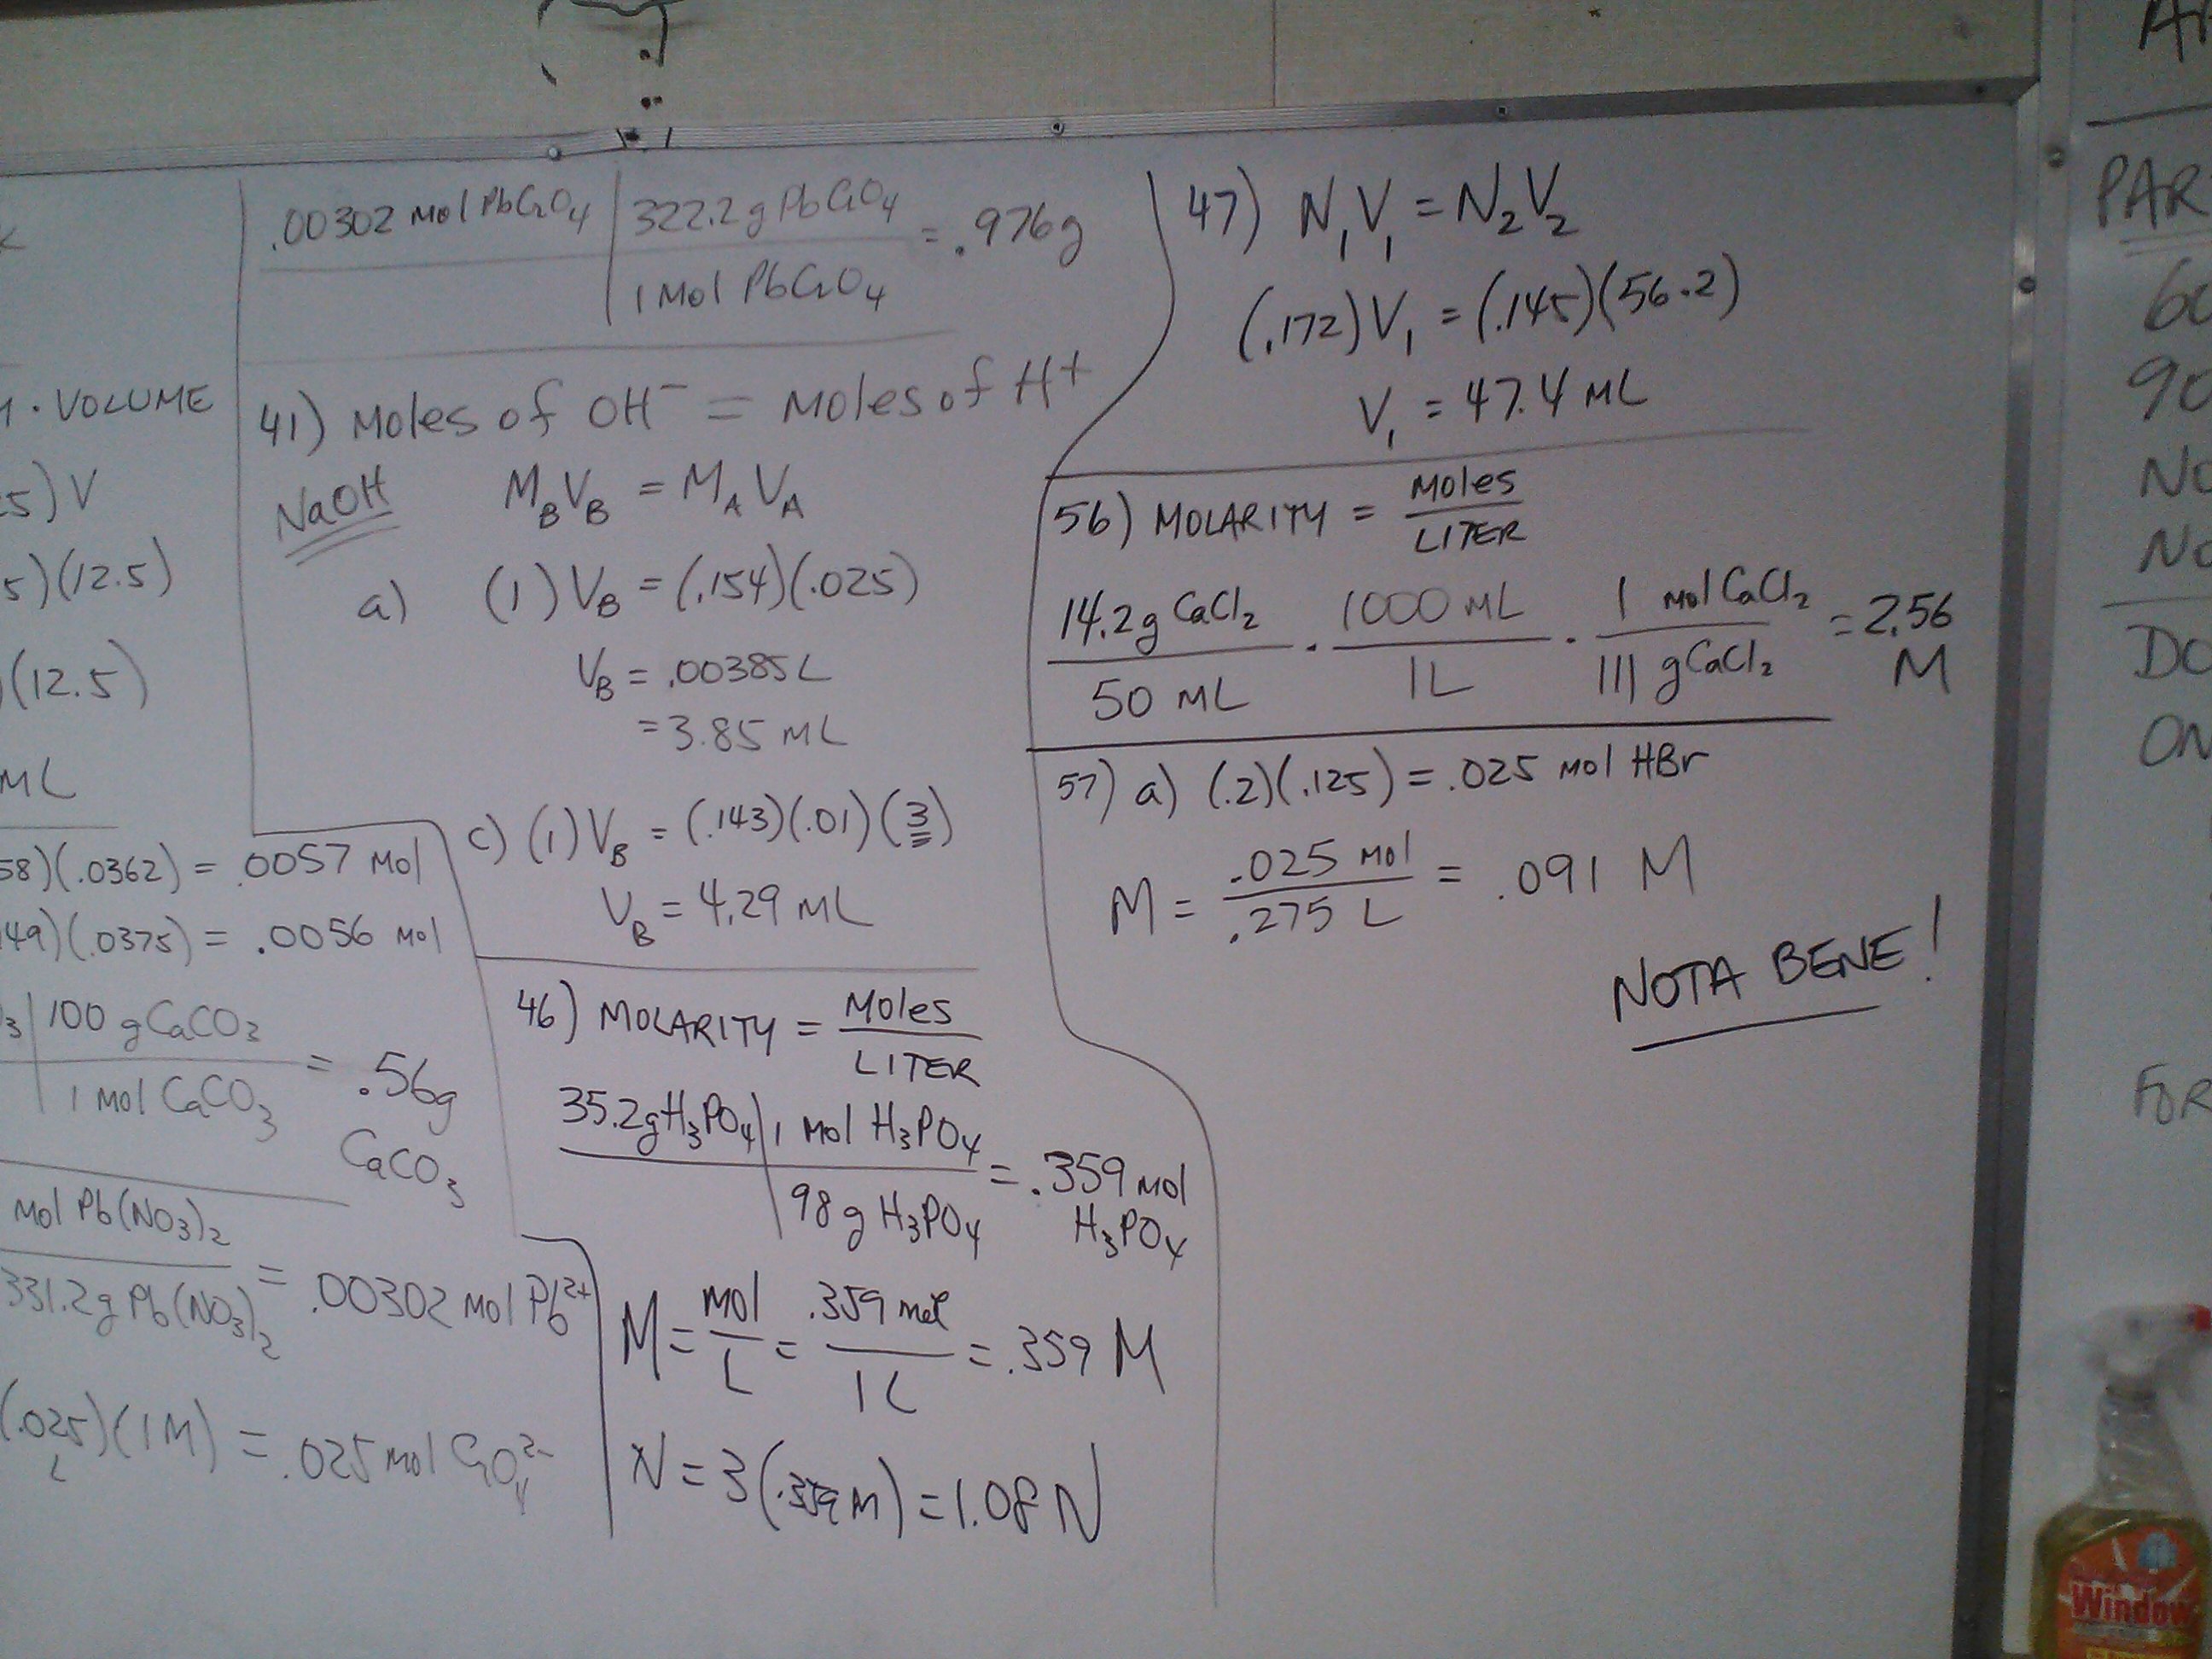 M · VOLUME
5) V
5)(12.5)
(12.5)
ML
58)(.0362) = .0057 mol
149)(.0375) = .0056 mol
3 | 100 g CaCO3 / 1 mol CaCO3 = .56g CaCO3
mol Pb(NO3)2 / 331.2g Pb(NO3)2 = .00302 mol Pb2+
(.025)(1M) = .025 mol CrO4 2-
L
.00302 mol PbCrO4 | 322.2 g PbCrO4 / 1 Mol PbCrO4 = .976g
41) Moles of OH⁻ = Moles of H+
NaOH MBVB = MAVA
a) (1) VB = (.154)(.025)
VB = .00385L
= 3.85 mL
c) (1) VB = (.143)(.01)(3)
VB = 4.29 mL
46) MOLARITY = Moles / LITER
35.2g H3PO4 | 1 mol H3PO4 / 98 g H3PO4 = .359 mol H3PO4
M = mol / L = .359 mol / 1 L = .359 M
N = 3(.359 M) = 1.08 N
47) N1V1 = N2V2
(.172)V1 = (.145)(56.2)
V1 = 47.4 mL
56) MOLARITY = Moles / LITER
14.2g CaCl2 / 50 mL · 1000 mL / 1L · 1 mol CaCl2 / 111 g CaCl2 = 2.56 M
57) a) (.2)(.125) = .025 mol HBr
M = .025 mol / .275 L = .091 M
NOTA BENE!
PAR
60
90
NO
NO
DO
ON
FOR
Window